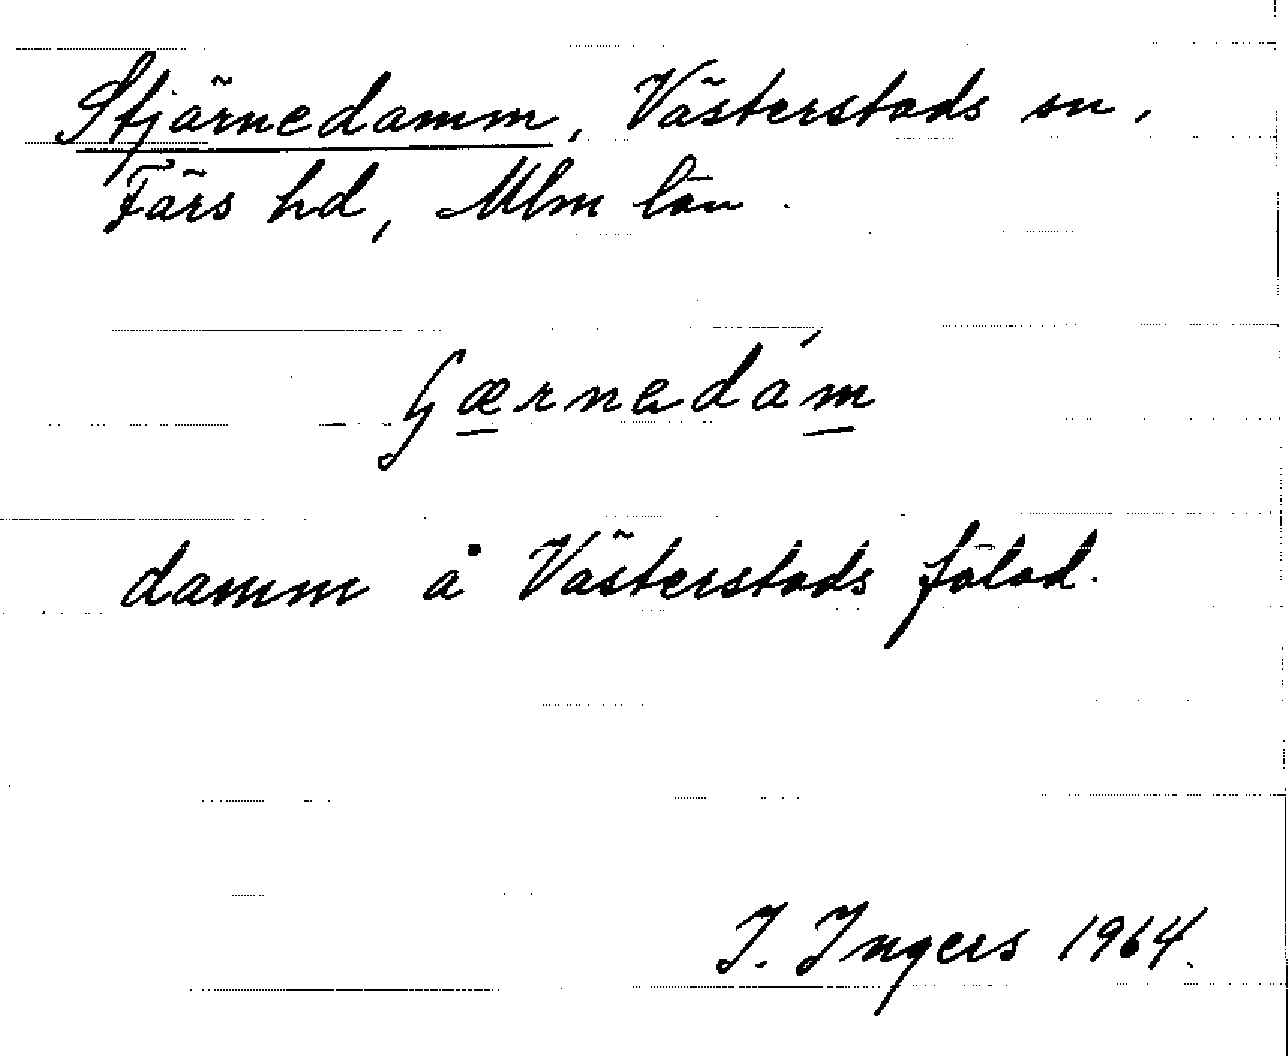 Stjärnedamm, Västerstads sn,
Färs hd, Mlm län.
ʃærnedám
damm å Västerstads fälad.
I. Ingers 1964.